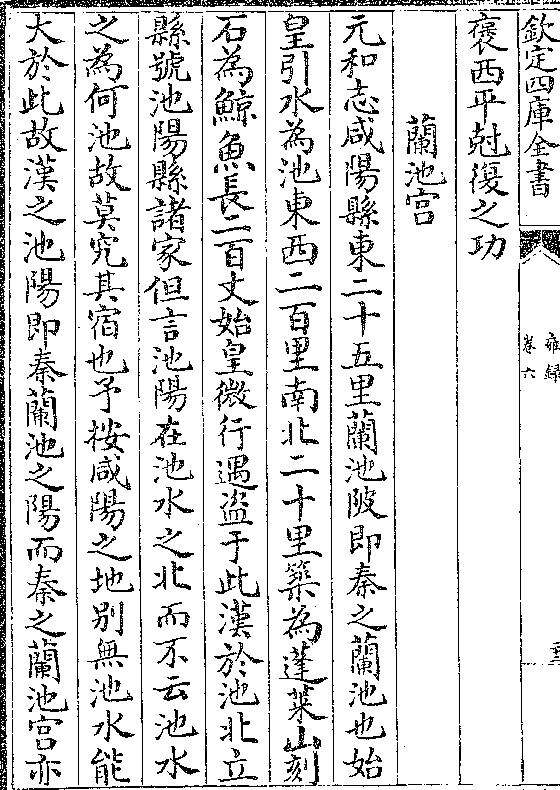 欽定四庫全書
雍録
卷六
褒西平尅復之功
蘭池宫
元和志咸陽縣東二十五里蘭池陂即秦之蘭池也始
皇引水為池東西二百里南北二十里築為蓬萊山刻
石為鯨魚長二百丈始皇微行遇盜于此漢於池北立
縣號池陽縣諸家但言池陽在池水之北而不云池水
之為何池故莫究其宿也予按咸陽之地别無池水能
大於此故漢之池陽即秦蘭池之陽而秦之蘭池宫亦